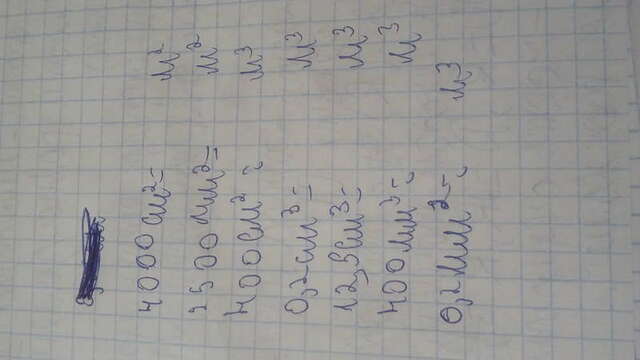 4000 см²= м²
1500 мм²= м²
400 см² = м³
0,2 см³= м³
12,5 см³= м³
400 мм³= м³
0,2 мм²= м³